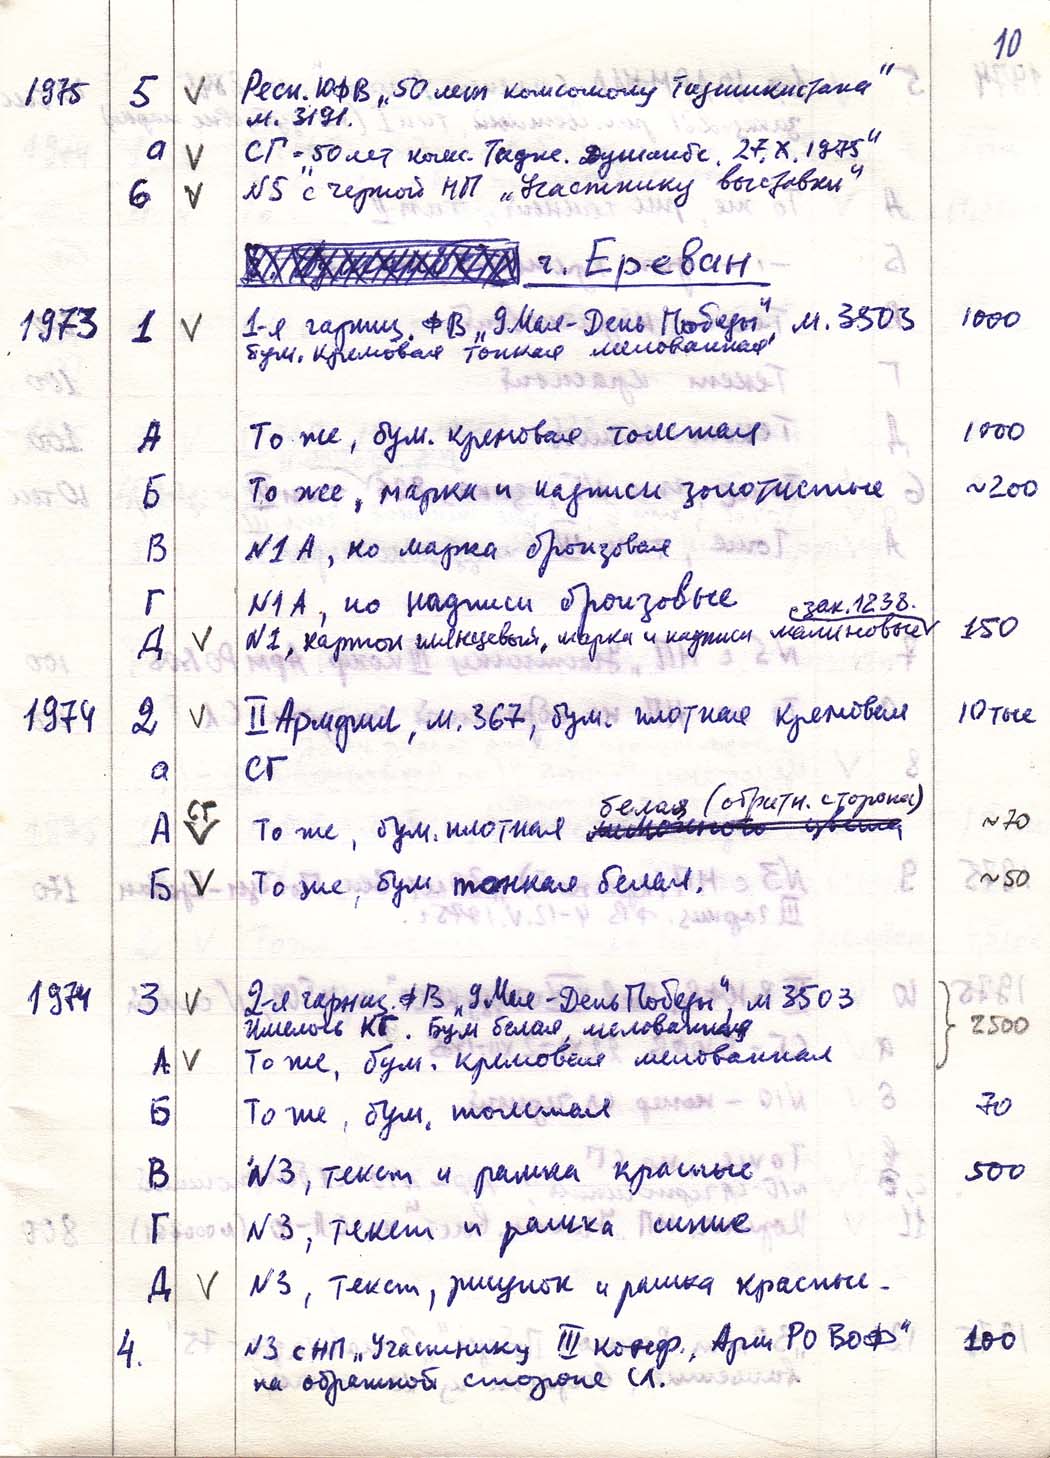 10
1975 5 V Респ. ЮФВ „50 лет комсомолу Таджикистана"
м. 3191.
а V СГ - „50 лет комс. Тадж. Душанбе. 27.X.1975"
6 V N5 с черной НП „Участнику выставки"
г. Ереван
1973 1 V 1-я гарниз. ФВ „9 Мая - День Победы" м. 3503 1000
бум. кремовая тонкая мелованная
А То же, бум. кремовая толстая 1000
Б То же, марка и надписи золотистые ~200
В N1А, но марка бронзовая
Г N1А, но надписи бронзовые
с зак. 1238.
Д V N1, картон глянцевый, марка и надписи малиновые 150
1974 2 V II Армфил, м. 367, бум. плотная кремовая 10 тыс
а СГ
СГ белая (обратн. сторона)
А V То же, бум. плотная ~70
Б V То же, бум тонкая белая. ~50
1974 3 V 2-я гарниз. ФВ „9 Мая - День Победы", м 3503
Имелось КГ. Бум белая, мелованная 2500
А V То же, бум. кремовая мелованная
Б То же, бум. толстая 70
В N3, текст и рамка красные 500
Г N3, текст и рамка синие
Д V N3, текст, рисунок и рамка красные.
4. N3 с НП „Участнику III конф. Арм РО ВОФ" 100
на обратной стороне СЛ.